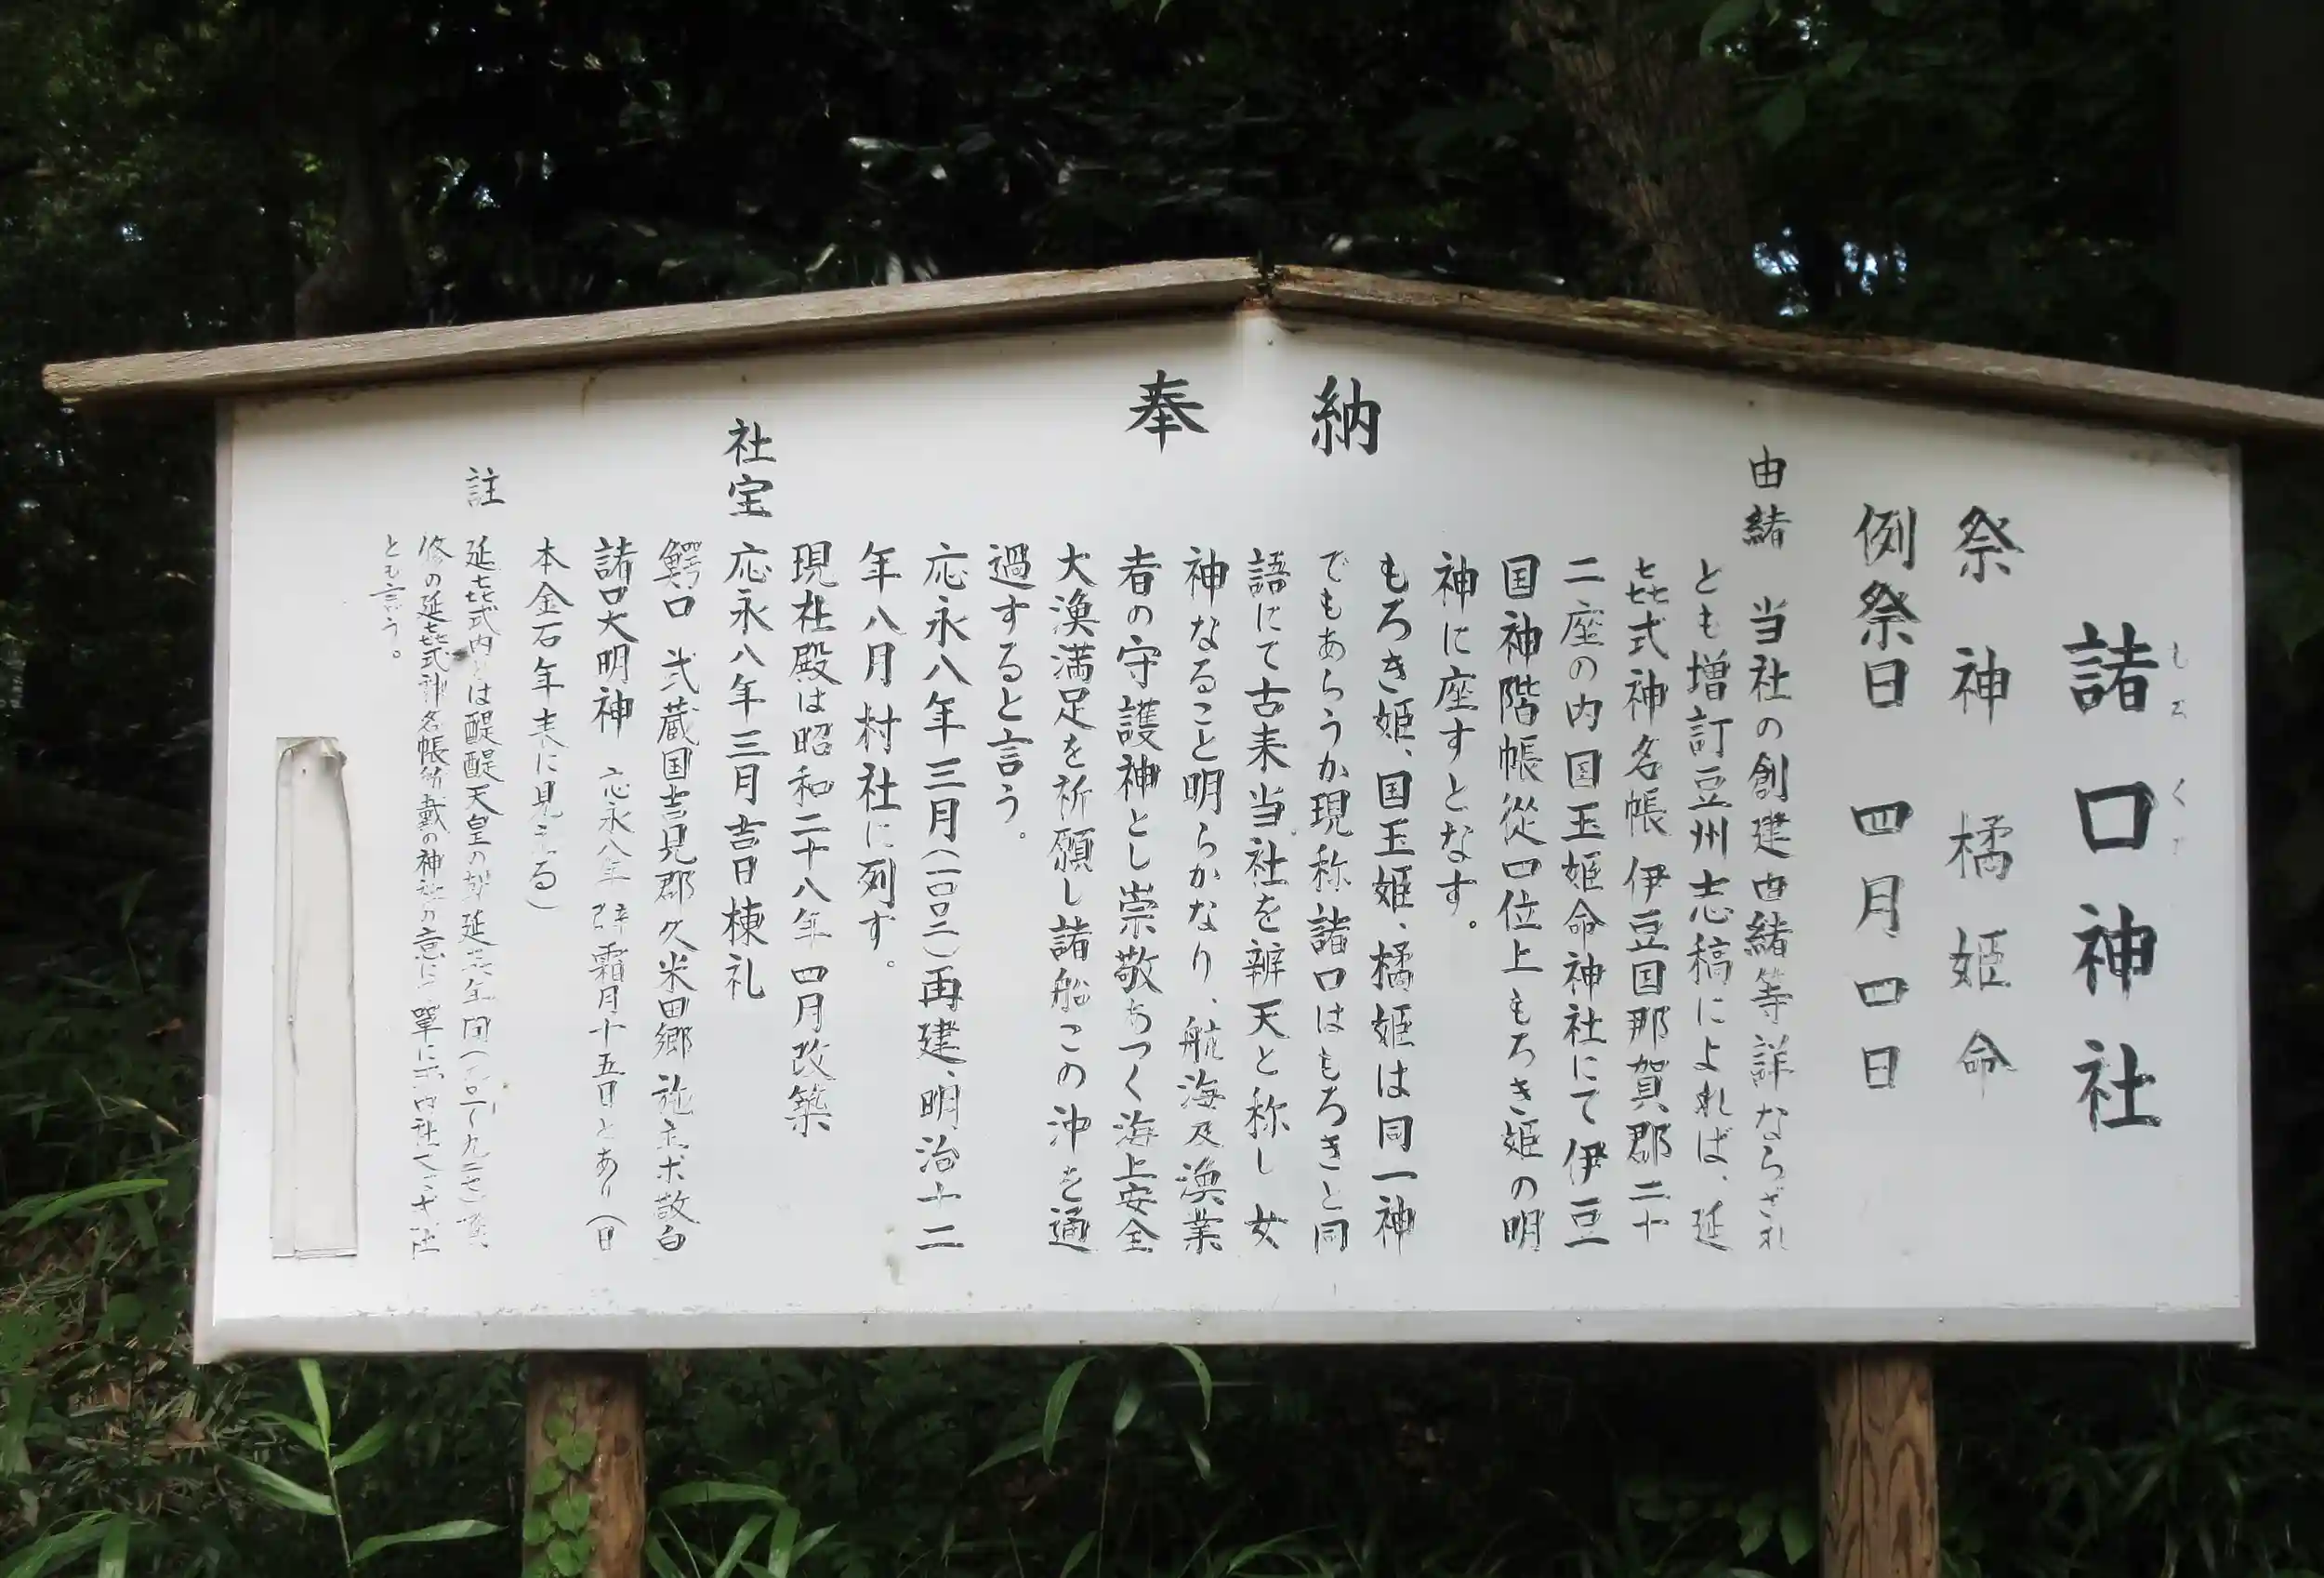 奉納
諸口神社
祭神 橘姫命
例祭日 四月四日
由緒 当社の創建由緒等詳ならざれ
とも増訂豆州志稿によれば、延
㐂式神名帳伊豆国那賀郡二十
二座の内国玉姫命神社にて伊豆
国神階帳従四位上もろき姫の明
神に座すとなす。
もろき姫、国玉姫、橘姫は同一神
でもあらうか現称諸口はもろきと同
語にて古来当社を辨天と称し女
神なること明らかなり、航海及漁業
者の守護神とし崇敬あつく海上安全
大漁満足を祈願し諸船この沖を通
過すると言う。
応永八年三月(一四〇二)再建、明治十二
年八月村社に列す。
現社殿は昭和二十八年四月改築
社宝 応永八年三月吉日棟札
鰐口 武蔵国吉見郡久米田郷 施主 敬白
諸口大明神 応永八年 霜月十五日とあり(日
本金石年表に見える)
註 延㐂式内とは醍醐天皇の 延㐂年間
修の延㐂式神名帳所載の神社の意に 單に式内社
とも言う。